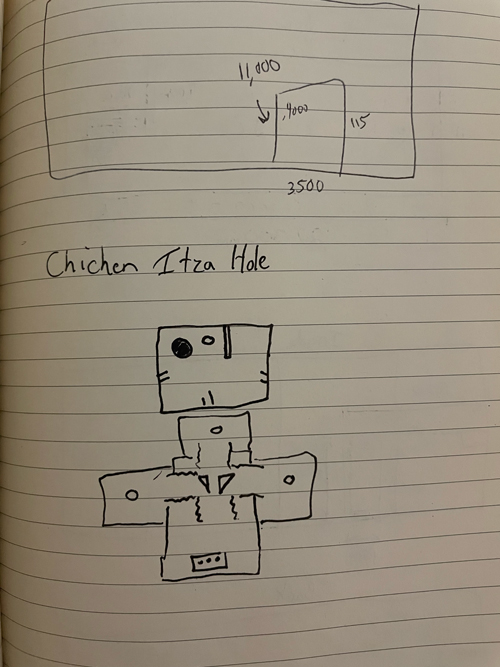 11,000
.4000
115
3500
Chichen Itza Hole